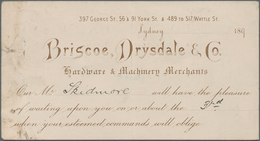 397 George St. 56 & 91 York St. & 489 to 517 Wattle St.
Sydney 189
Briscoe, Drysdale & Co.
Hardware & Machinery Merchants
Our Mr Skidmore will have the pleasure
of waiting upon you on or about the 3rd
when your esteemed commands will oblige